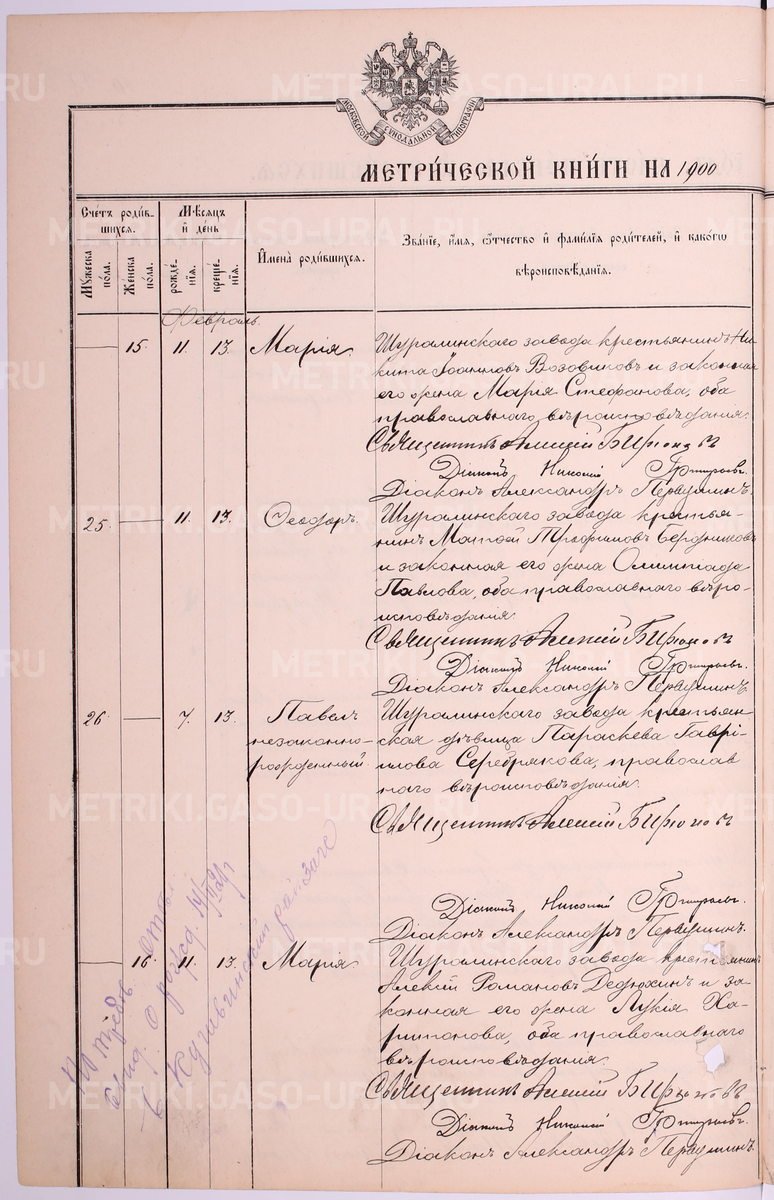 МОСКОВСКОЙ СѴНОДАЛЬНОЙ ТИПОГРАФІИ
МЕТРИ́ЧЕСКОЙ КНИ́ГИ НА 1900
Счетъ роди́в-
шихся.
Мꙋжеска пола.
Женска пола.
Мѣсяцъ
и҆ де́нь
рожде́-
нїѧ.
креще́-
нїѧ.
И҆мена̀ роди́вшихсѧ.
Зва́нїе, и҆́мѧ, ѻ҆́тчество и҆ фами́лїѧ роди́телей, и҆ како́гѡ
вѣроисповѣ́данїѧ.
Февраль.
— 15. 11. 13. Марія.
Шуралинскаго завода крестьянинъ Ни-
кита Іоанновъ Возовиковъ и законная
его жена Марія Стефанова, оба
православнаго вѣроисповѣданія.
Священникъ Алексій Бирюковъ
Діаконъ Николай
Діаконъ Александръ Первушинъ.
25. — 11. 13. Ѳеодоръ.
Шуралинскаго завода крестья-
нинъ Матѳей Трофимовъ Бердниковъ
и законная его жена Олимпіада
Павлова, оба православнаго вѣро-
исповѣданія.
Священникъ Алексій Бирюковъ
Діаконъ Николай
Діаконъ Александръ Первушинъ.
26. — 7. 13. Павелъ
незаконно-
рожденный.
Шуралинскаго завода крестьян-
ская дѣвица Параскева Гаврі-
илова Серебрякова, православ
наго вѣроисповѣданія.
Священникъ Алексій Бирюковъ
Діаконъ Николай
Діаконъ Александръ Первушинъ.
— 16. 11. 13. Марія.
Шуралинскаго завода крестьянинъ
Алексій Романовъ Дедюхинъ и за-
конная его жена Лукія Ха-
ритонова, оба православнаго
вѣроисповѣданія.
Священникъ Алексій Бирюковъ
Діаконъ Николай
Діаконъ Александръ Первушинъ.
о рожд.
METRIKI.GASO-URAL.RU